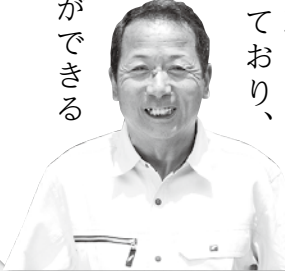 ており、
ができる